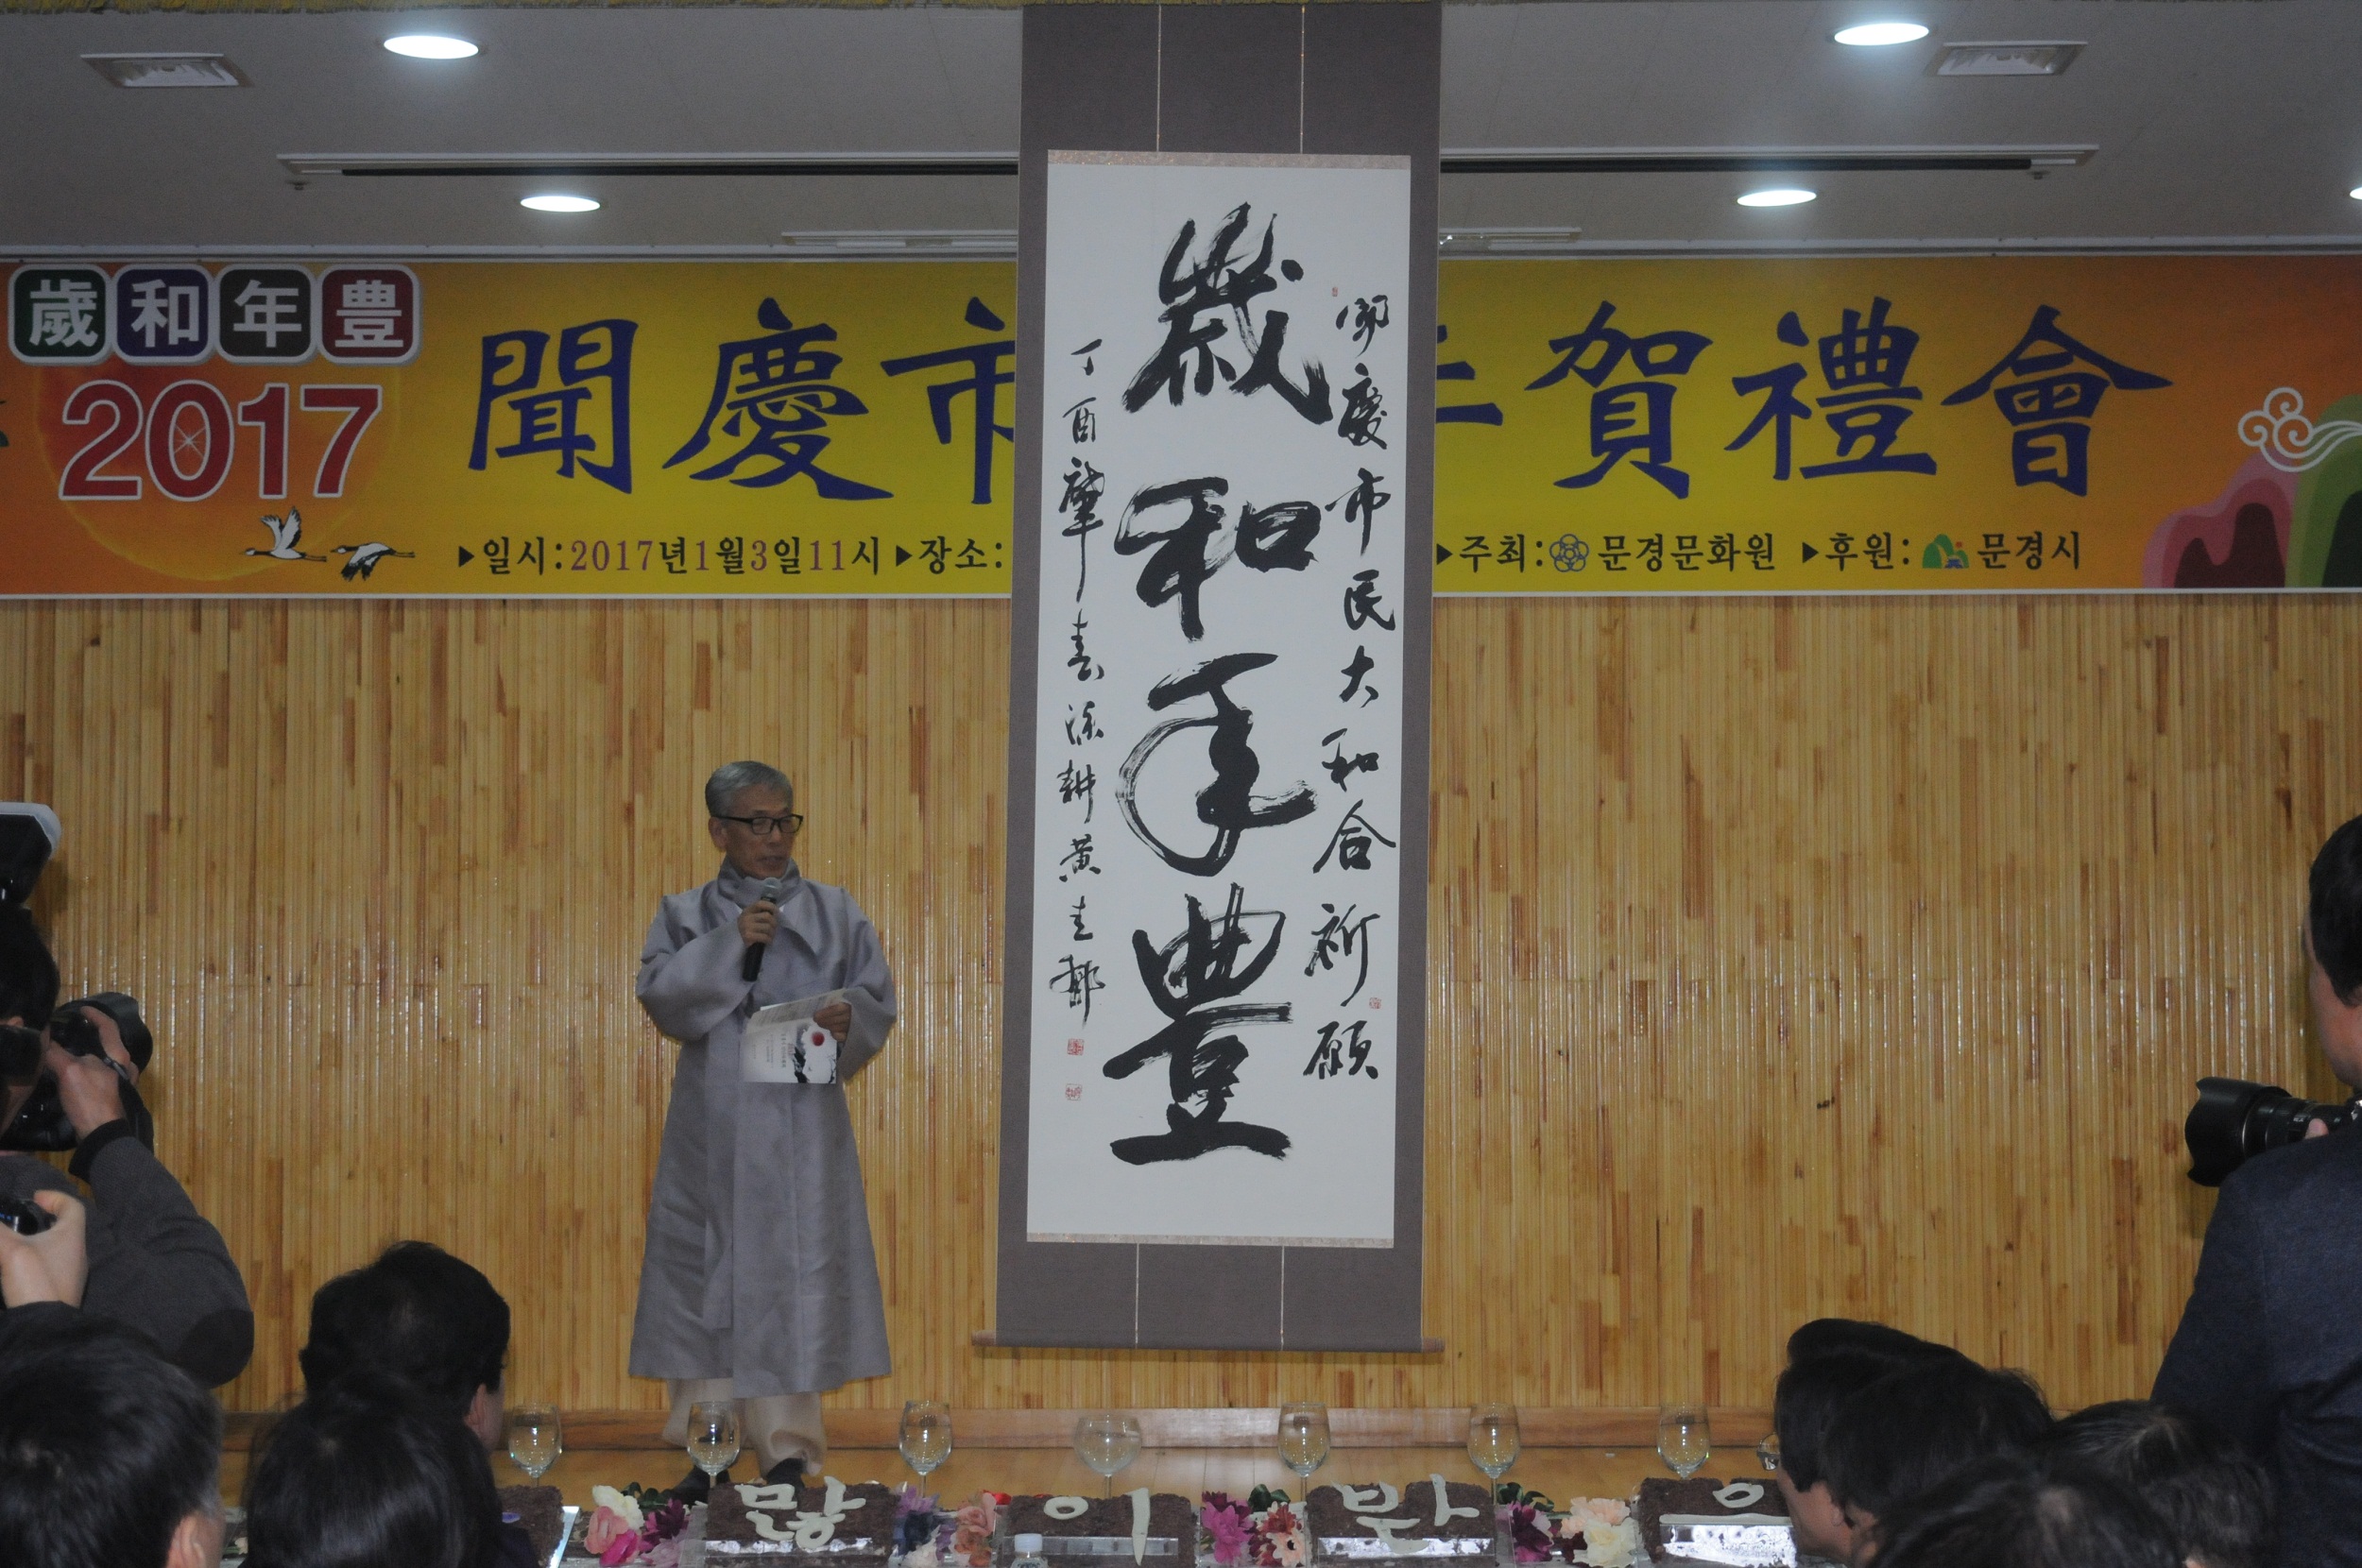 歲和年豊
2017
聞慶市
賀禮會
▶일시:2017년1월3일11시 ▶장소:
▶주최: 문경문화원 ▶후원: 문경시
聞慶市民大和合祈願
歲和年豊
丁酉肇春
耕黃
많 이 받 으